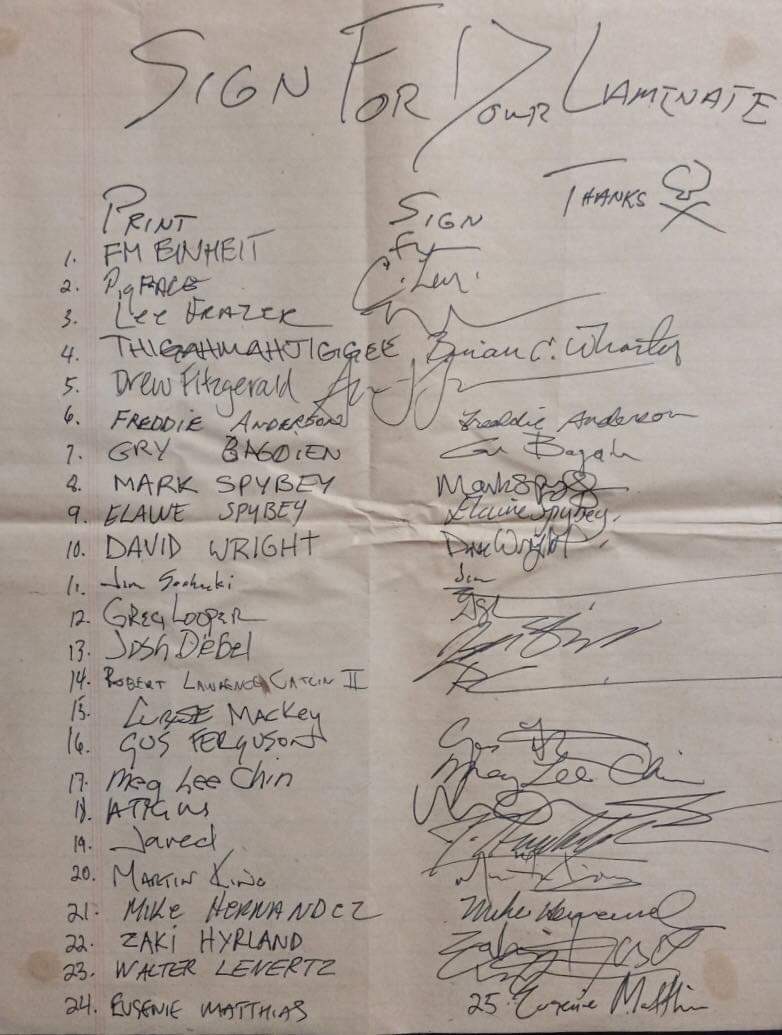 SIGN FOR YOUR LAMINATE
THANKS
PRINT SIGN
1. FM EINHEIT FM
2. PigFACE
3. LEE FRAZER
4. THIGAHMAHJIGGEE Brian C. Wharton
5. Drew Fitzgerald
6. FREDDIE ANDERSON Freddie Anderson
7. GRY BAGØIEN
8. MARK SPYBEY Mark Spybey
9. ELAINE SPYBEY Elaine Spybey
10. DAVID WRIGHT Dave Wright
11. Jim Sochacki Jim
12. GREG LOOPER
13. JOSH DEBEL
14. ROBERT LAWRENCE CATLIN II
15. CURSE MACKEY
16. GUS FERGUSON
17. Meg Lee Chin Meg Lee Chin
18. ATTICUS
19. Jared
20. MARTIN KING
21. MIKE HERNANDEZ
22. ZAKI HYRLAND
23. WALTER LENERTZ
24. EUGENIE MATTHIAS 25. Eugenie Matthias